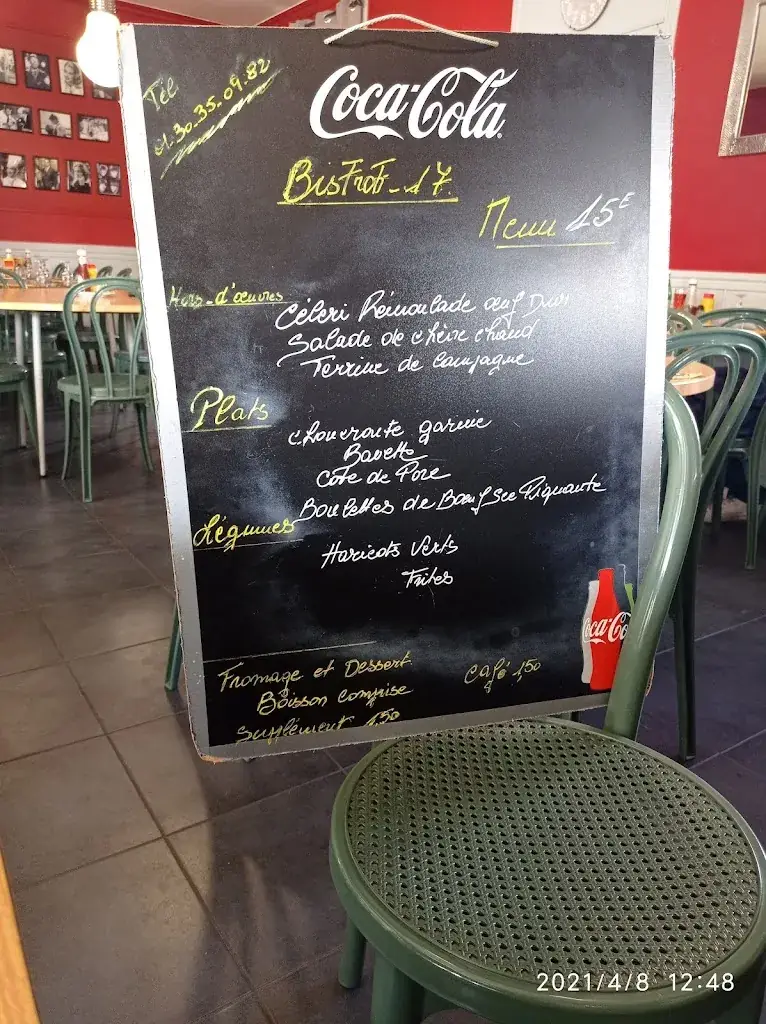 Tél
01.30.35.09.82
Coca-Cola
BisTroT-17
Menu 15E
Hors-d'œuvres
Céleri Rémoulade œuf Durs
Salade de chèvre chaud
Terrine de Campagne
Plats
Choucroute garnie
Bavette
Cote de Porc
Boulettes de Bœuf sce Piquante
Légumes
Haricots Verts
Frites
Coca-Co
Fromage et Dessert
Café 1,50
Boisson Comprise
Supplément 1,50
2021/4/8 12:48